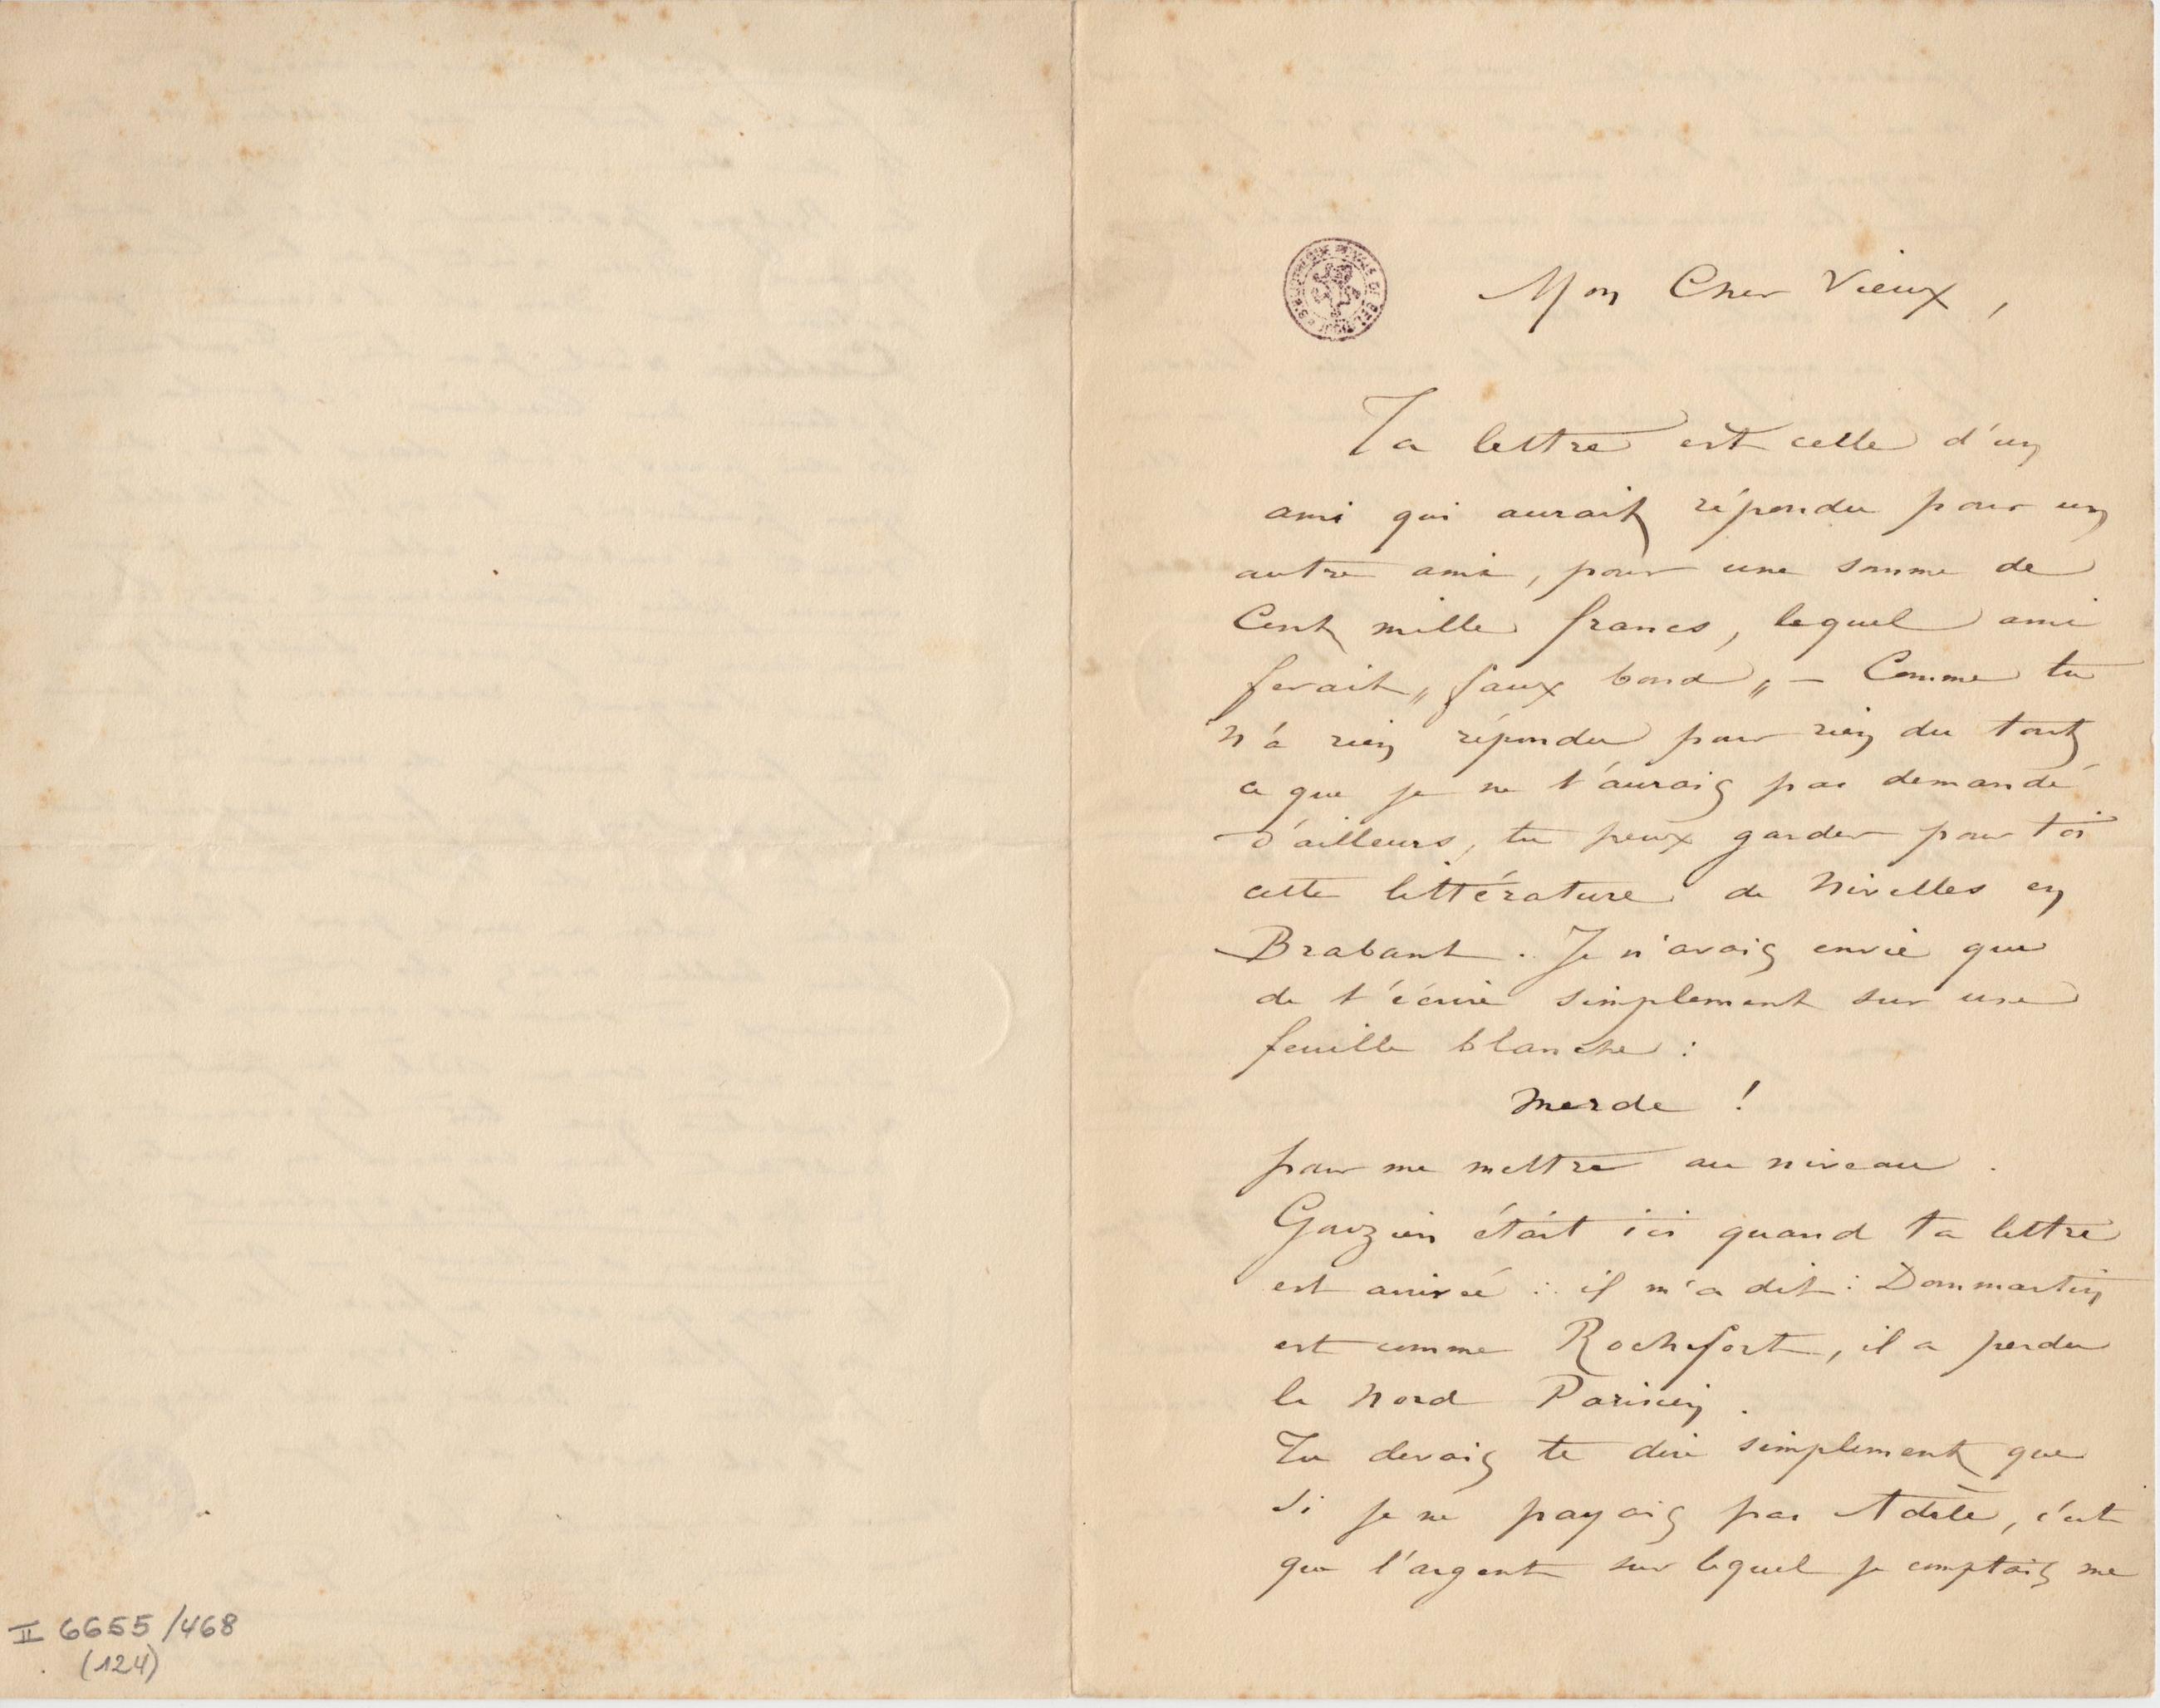 Mon Cher Vieux,
Ta lettre est celle d'un
ami qui aurait répondu pour un
autre ami, pour une somme de
Cent mille francs, lequel ami
ferait „ faux bond „ — Comme tu
n'a rien répondu pour rien du tout
ce que je ne t'aurais pas demandé
d'ailleurs, tu peux garder pour toi
cette littérature de Nivelles en
Brabant. Je n'avais envie que
de t'écrire simplement sur une
feuille blanche :
Merde !
pour me mettre au niveau.
Gouzien était ici quand ta lettre
est arrivée : il m'a dit : Dommartin
est comme Rochefort, il a perdu
le Nord Parisien.
Tu devais te dire simplement que
si je ne payais pas Adèle, c'est
que l'argent sur lequel je comptais me
II 6655/468
(124)